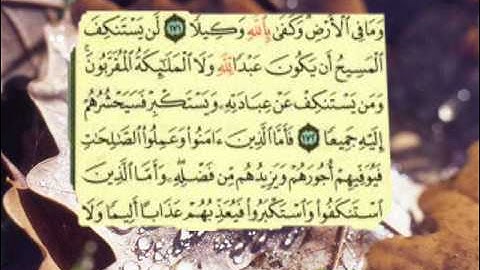 وَمَا فِي ٱلْأَرْضِ وَكَفَىٰ بِٱللَّهِ وَكِيلًا ١٧١ لَّن يَسْتَنكِفَ
ٱلْمَسِيحُ أَن يَكُونَ عَبْدًا لِّلَّهِ وَلَا ٱلْمَلَٰٓئِكَةُ ٱلْمُقَرَّبُونَ
وَمَن يَسْتَنكِفْ عَنْ عِبَادَتِهِۦ وَيَسْتَكْبِرْ فَسَيَحْشُرُهُمْ
إِلَيْهِ جَمِيعًا ١٧٢ فَأَمَّا ٱلَّذِينَ ءَامَنُوا۟ وَعَمِلُوا۟ ٱلصَّٰلِحَٰتِ
فَيُوَفِّيهِمْ أُجُورَهُمْ وَيَزِيدُهُم مِّن فَضْلِهِۦ وَأَمَّا ٱلَّذِينَ
ٱسْتَنكَفُوا۟ وَٱسْتَكْبَرُوا۟ فَيُعَذِّبُهُمْ عَذَابًا أَلِيمًا وَلَا